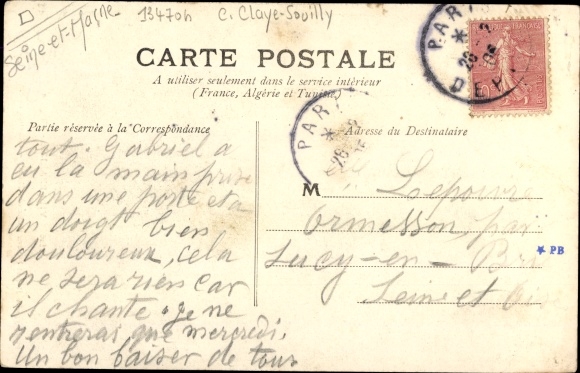 Seine-et-Marne
13470h
C. Claye-Souilly
PARIS
26
2
CARTE POSTALE
A utiliser seulement dans le service intérieur
(France, Algérie et Tunisie)
Partie réservée à la Correspondance
Adresse du Destinataire
tout. Gabriel a
eu la main prise
dans une porte et a
un doigt bien
douloureux, cela
ne sera rien car
il chante. je ne
rentrerai que mercredi.
Un bon baiser de tous
PARIS
26
M Lepouvre
Ormesson, par
Sucy-en-Brie
Seine et Oise
* PB